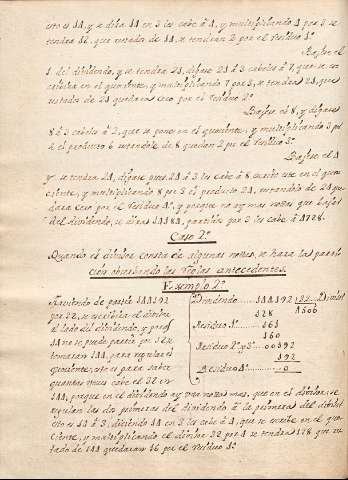 esto es 14, y se dirá 14 en 3 les cabe á 4, y multiplicando 4 por 3 se
tendra 12, que restado de 14, se tendran 2 por el residuo 1º
Bajese el
1 del dividendo, y se tendra 21, digase 21 á 3 cabele á 7, que se es-
cribira en el quociente, y multiplicando 7 por 3, se tendra 21, que
restado de 21 quedara cero por el residuo 2º
Bajese el 8, y digase
8 á 3 cabele á 2, que se pone en el quociente, y multiplicando 3 por
2 el producto 6 restandole de 8 quedan 2 por el residuo 3º
Bajese el 4
y se tendra 24, digase pues 24 á 3 les cabe á 8 escribo este en el quo-
ciente, y multiplicando 8 por 3 el producto 24, restandolo de 24 que-
dara cero por el residuo 4º, y porque no ay mas notas que bajar
del dividendo, se dira partido por 3 les cabe á 4728.
Caso 2º
Quando el divisor consta de algunas notas, se hara las parti-
cion observando las reglas antecedentes.
Exemplo 2º
Haviendo de partir 144192
por 32, se escribira el divisor
al lado del dividendo, y porq
14 no se puede partir por 32 se
tomaran 144, para regular el
quociente, esto es para saber
quantas veces cabe el 32 en
144, porque en el dividendo ay una nota mas, que en el divisor, se
regulan las dos primeras del dividendo á la primera del divisor
esto es 14 á 3, diciendo 14 en 3 les cabe á 4, que se escribe en el quo-
ciente, y multiplicando el divisor 32 por 4 se tendra 128 que res-
tado de 144 quedaran 16 por el residuo 1º
Dividendo 144192 32 Divisor
128 4506
Residuo 1º 161
160
Residuo 2º y 3º 00192
192
Residuo 4º 0